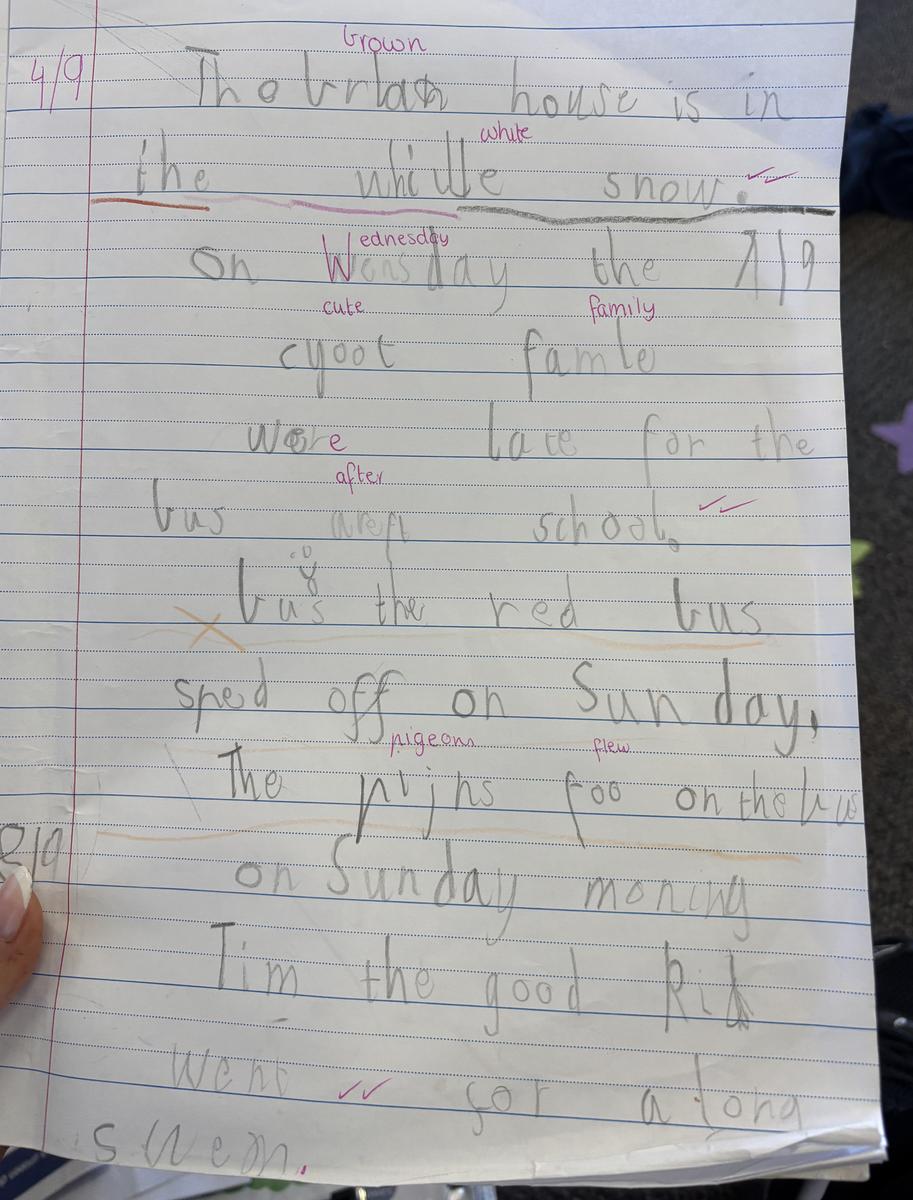 brown
4/9 The house is in
white
the whitte snow.
Wednesday
on Wensday the 7/9
cute family
cyoot famle
were late for the
after
bus areft school.
bus the red bus
sped off on Sunday,
pigeons flew
The pijns foo on the bus
8/9 on Sunday moning
Tim the good Kid
went for a long
swem.